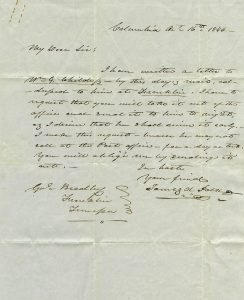 Columbia Oct. 16th 1844
My Dear Sir:
I have written a letter to
Wm. G. Childress by this day's mail, ad-
dressed to him at Franklin. I have to
request that you will take it out of the
office and send it to him to night,
as I desire that he shall receive it early.
I make this request because he may not
call at the Post office for a day or two.
You will oblige me by sending it
In haste
Your friend
James K. Polk
Bradley
Franklin
Tennessee